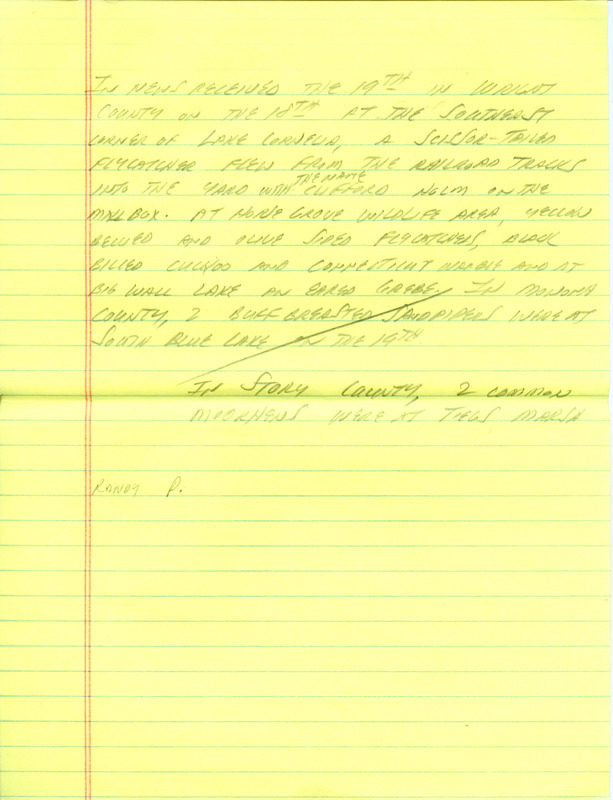 IN NEWS RECEIVED THE 19TH IN WRIGHT
COUNTY ON THE 18TH AT THE SOUTHEAST
CORNER OF LAKE CORNELIA, A SCISSOR-TAILED
FLYCATCHER FLEW FROM THE RAILROAD TRACKS
INTO THE YARD WITH THE NAME CLIFFORD HOLM ON THE
MAILBOX. AT GROVE WILDLIFE AREA, YELLOW
BELLIED AND OLIVE SIDED FLYCATCHERS, BLACK
BILLED CUCKOO AND CONNECTICUT WARBLER AND AT
BIG WALL LAKE AN EARED GREBE. IN MONONA
COUNTY, 2 BUFF BREASTED SANDPIPERS WERE AT
SOUTH BLUE LAKE ON THE 19TH.
IN STORY COUNTY, 2 COMMON
MOORHENS WERE AT MARSH
RANDY P.